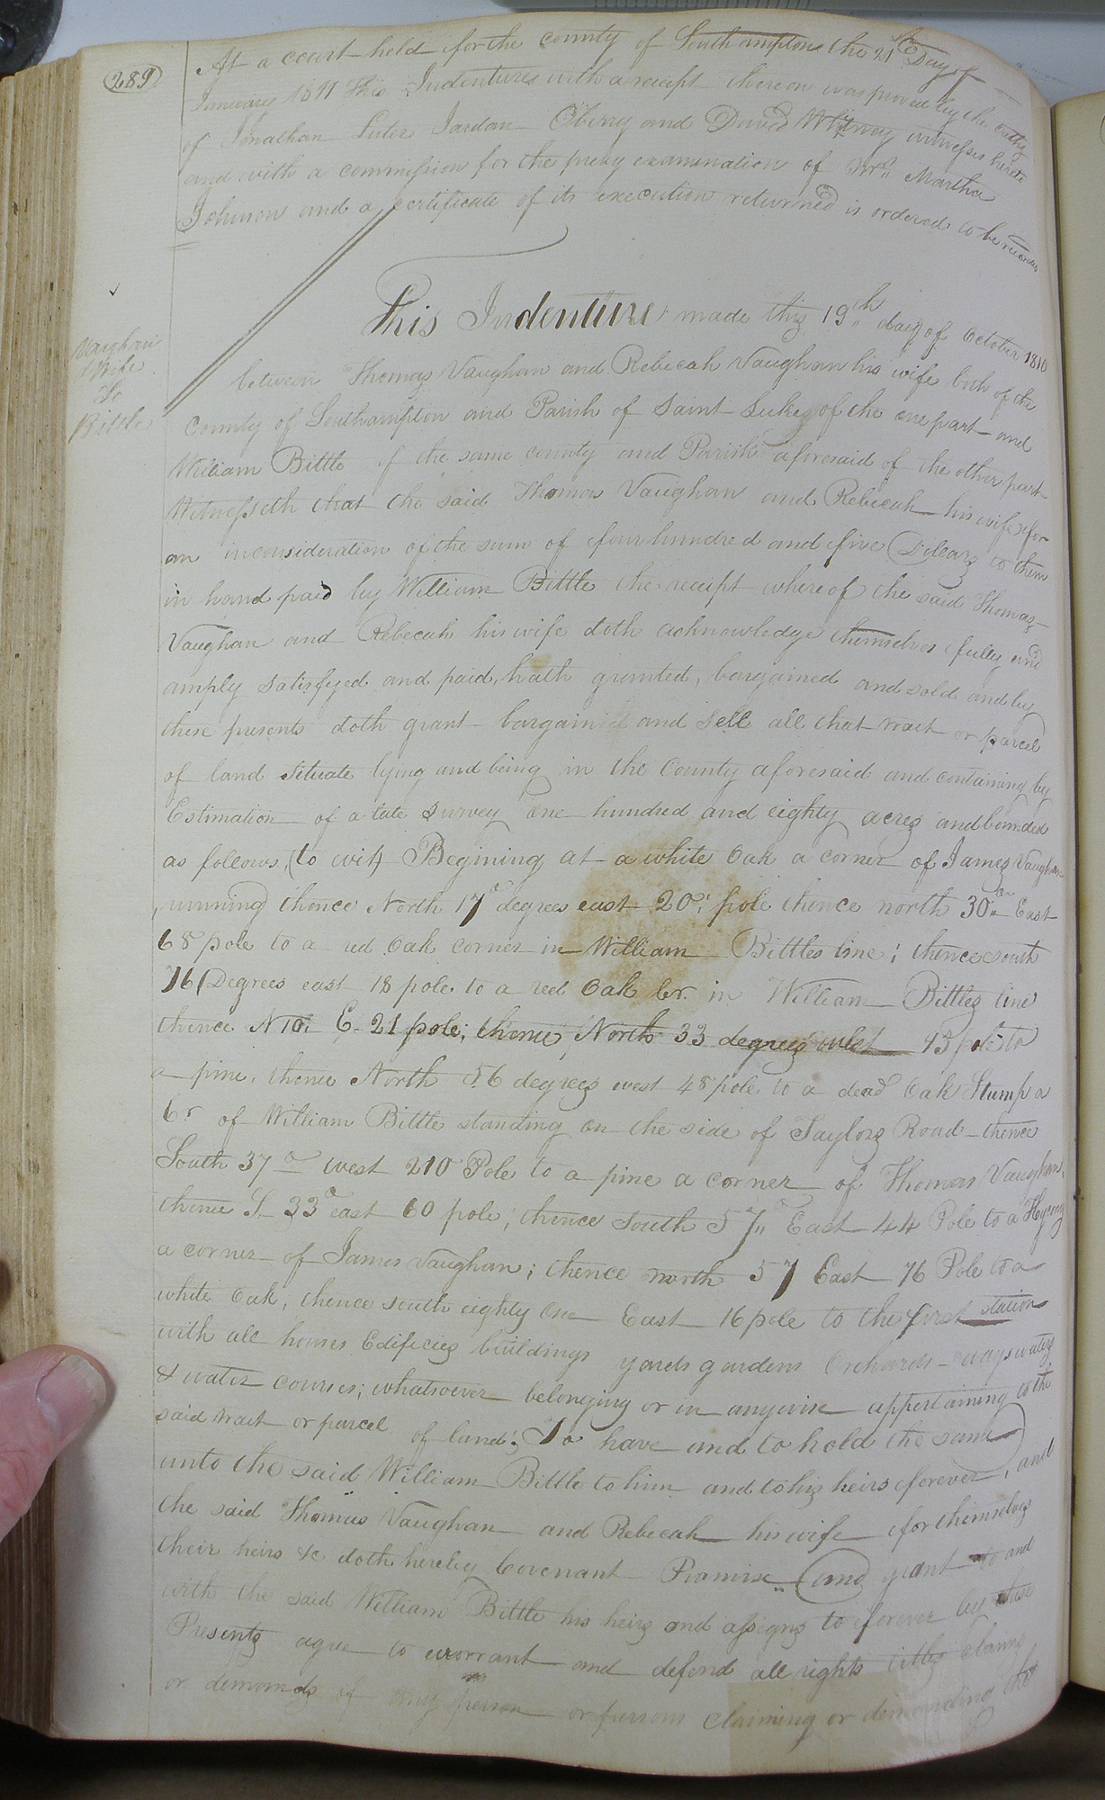 289
At a court held for the county of Southampton the 21st Day of
January 1811 This Indenture with a receipt thereon was proved by the oaths
of Jonathan Luter Jordan Oberry and David Witney witnesses hereto
and with a commission for the privy examination of Mrs Martha
Johnson and a certificate of its execution returned is ordered to be recorded
Vaughan
& Wife
To
Bittle
This Indenture made this 19th day of October 1810
between Thomas Vaughan and Rebecah Vaughan his wife both of the
County of Southampton and Parish of Saint Lukes of the one part and
William Bittle of the same county and Parish aforesaid of the other part
Witnesseth that the said Thomas Vaughan and Rebecah his wife for
an inconsideration of the sum of four hundred and five Dollars to them
in hand paid by William Bittle the receipt whereof the said Thomas
Vaughan and Rebecah his wife doth acknowledge themselves fully and
amply satisfyed and paid, hath granted, bargained and sold and by
these presents doth grant bargained and sell all that tract or parcel
of land situate lying and being in the County aforesaid and containing by
Estimation of a late survey one hundred and eighty acres and bounded
as follows (to wit) Begining at a white Oak a corner of James Vaughan
running thence North 17° degrees east 20 pole thence north 30° East
68 pole to a red Oak corner in William Bittles line; thence south
76 Degrees east 18 pole to a red Oak Cr. in William Bittles line
thence N 10 E. 21 pole; thence North 33 degrees west 45 pole to
a pine, thence North 56 degrees west 48 pole to a dead Oak Stump a
Cr of William Bittle standing on the side of Taylors Road thence
South 37° west 210 Pole to a pine a corner of Thomas Vaughans,
thence S. 33° east 60 pole; thence South 57" East 44 Pole to a
a corner of James Vaughan; thence north 57 East 76 Pole to a
white Oak, thence south eighty one East 16 pole to the first station
with all houses Edificies buildings yards gardens Orchards ways waters
& water courses; whatsoever belonging or in anywise appertaining to the
said tract or parcel of land; To have and to hold the same
unto the said William Bittle to him and to his heirs forever, and
the said Thomas Vaughan and Rebecah his wife for themselves
their heirs &c doth hereby Covenant Promise (and grant to and
with the said William Bittle his heirs and assigns to forever by these
Presents agree to warrant and defend all rights titles claims
or demands of any person or persons claiming or demanding the